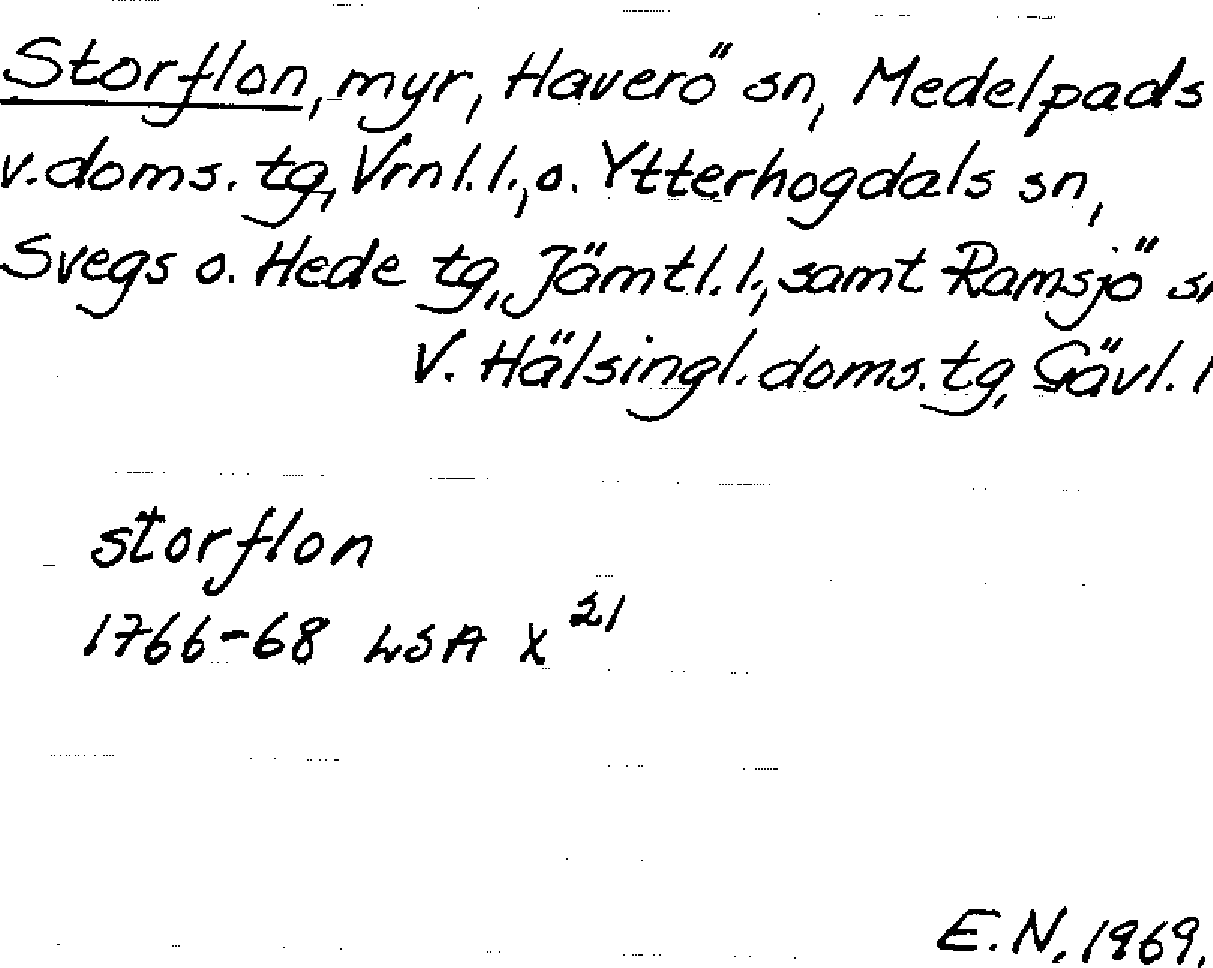 Storflon, myr, Haverö sn, Medelpads
v. doms. tg, Vrnl. l., o. Ytterhogdals sn,
Svegs o. Hede tg, Jämtl. l., samt Ramsjö sn
V. Hälsingl. doms. tg, Gävl. l
storflon
1766-68 LSA X 21
E.N. 1969.